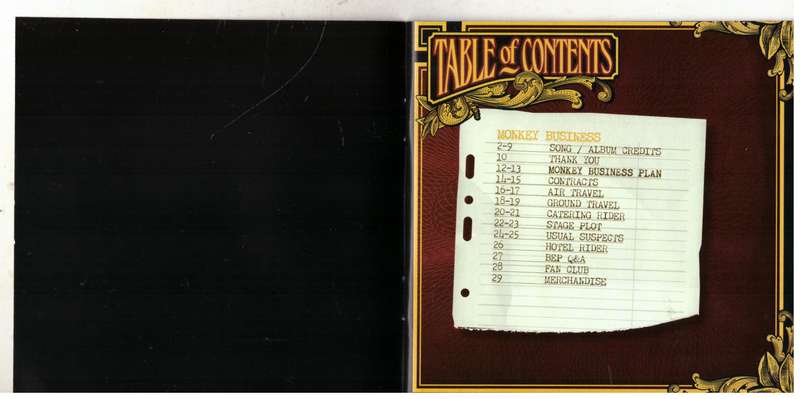 TABLE of CONTENTS
MONKEY BUSINESS
2-9 SONG / ALBUM CREDITS
10 THANK YOU
12-13 MONKEY BUSINESS PLAN
14-15 CONTRACTS
16-17 AIR TRAVEL
18-19 GROUND TRAVEL
20-21 CATERING RIDER
22-23 STAGE PLOT
24-25 USUAL SUSPECTS
26 HOTEL RIDER
27 BEP Q&A
28 FAN CLUB
29 MERCHANDISE